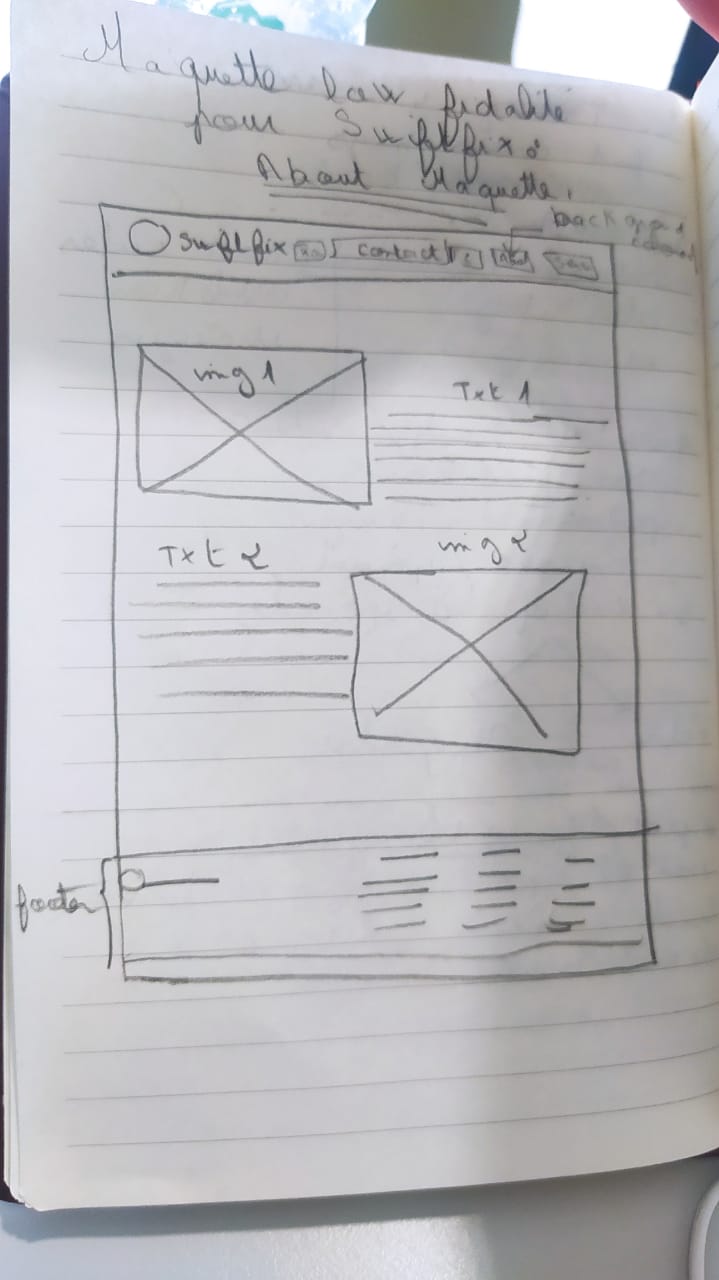 Maquette low fidalité
pour Swiftfix :
About Maquette.
back
Swiftfix contact
img 1
Txt 1
Txt 2
img 2
footer